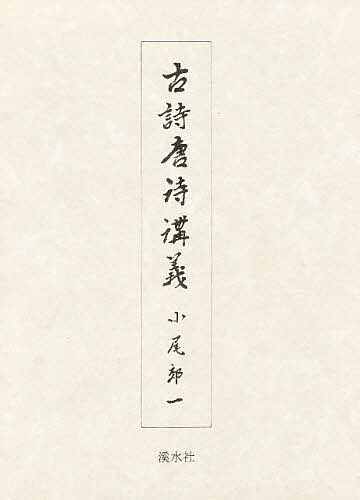 古詩唐詩講義
小尾郊一
溪水社